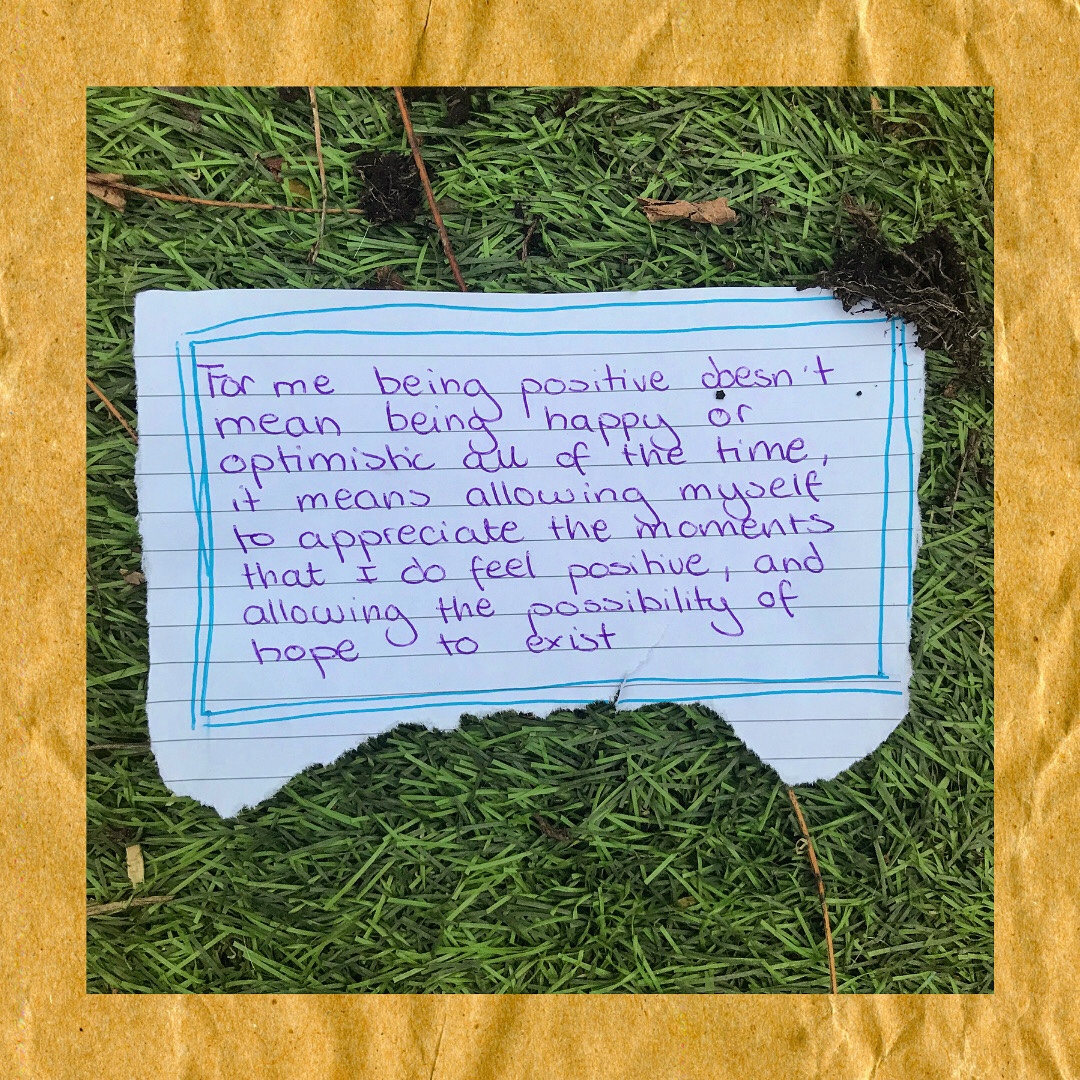 For me being positive doesn't
mean being happy or
optimistic all of the time,
it means allowing myself
to appreciate the moments
that I do feel positive, and
allowing the possibility of
hope to exist